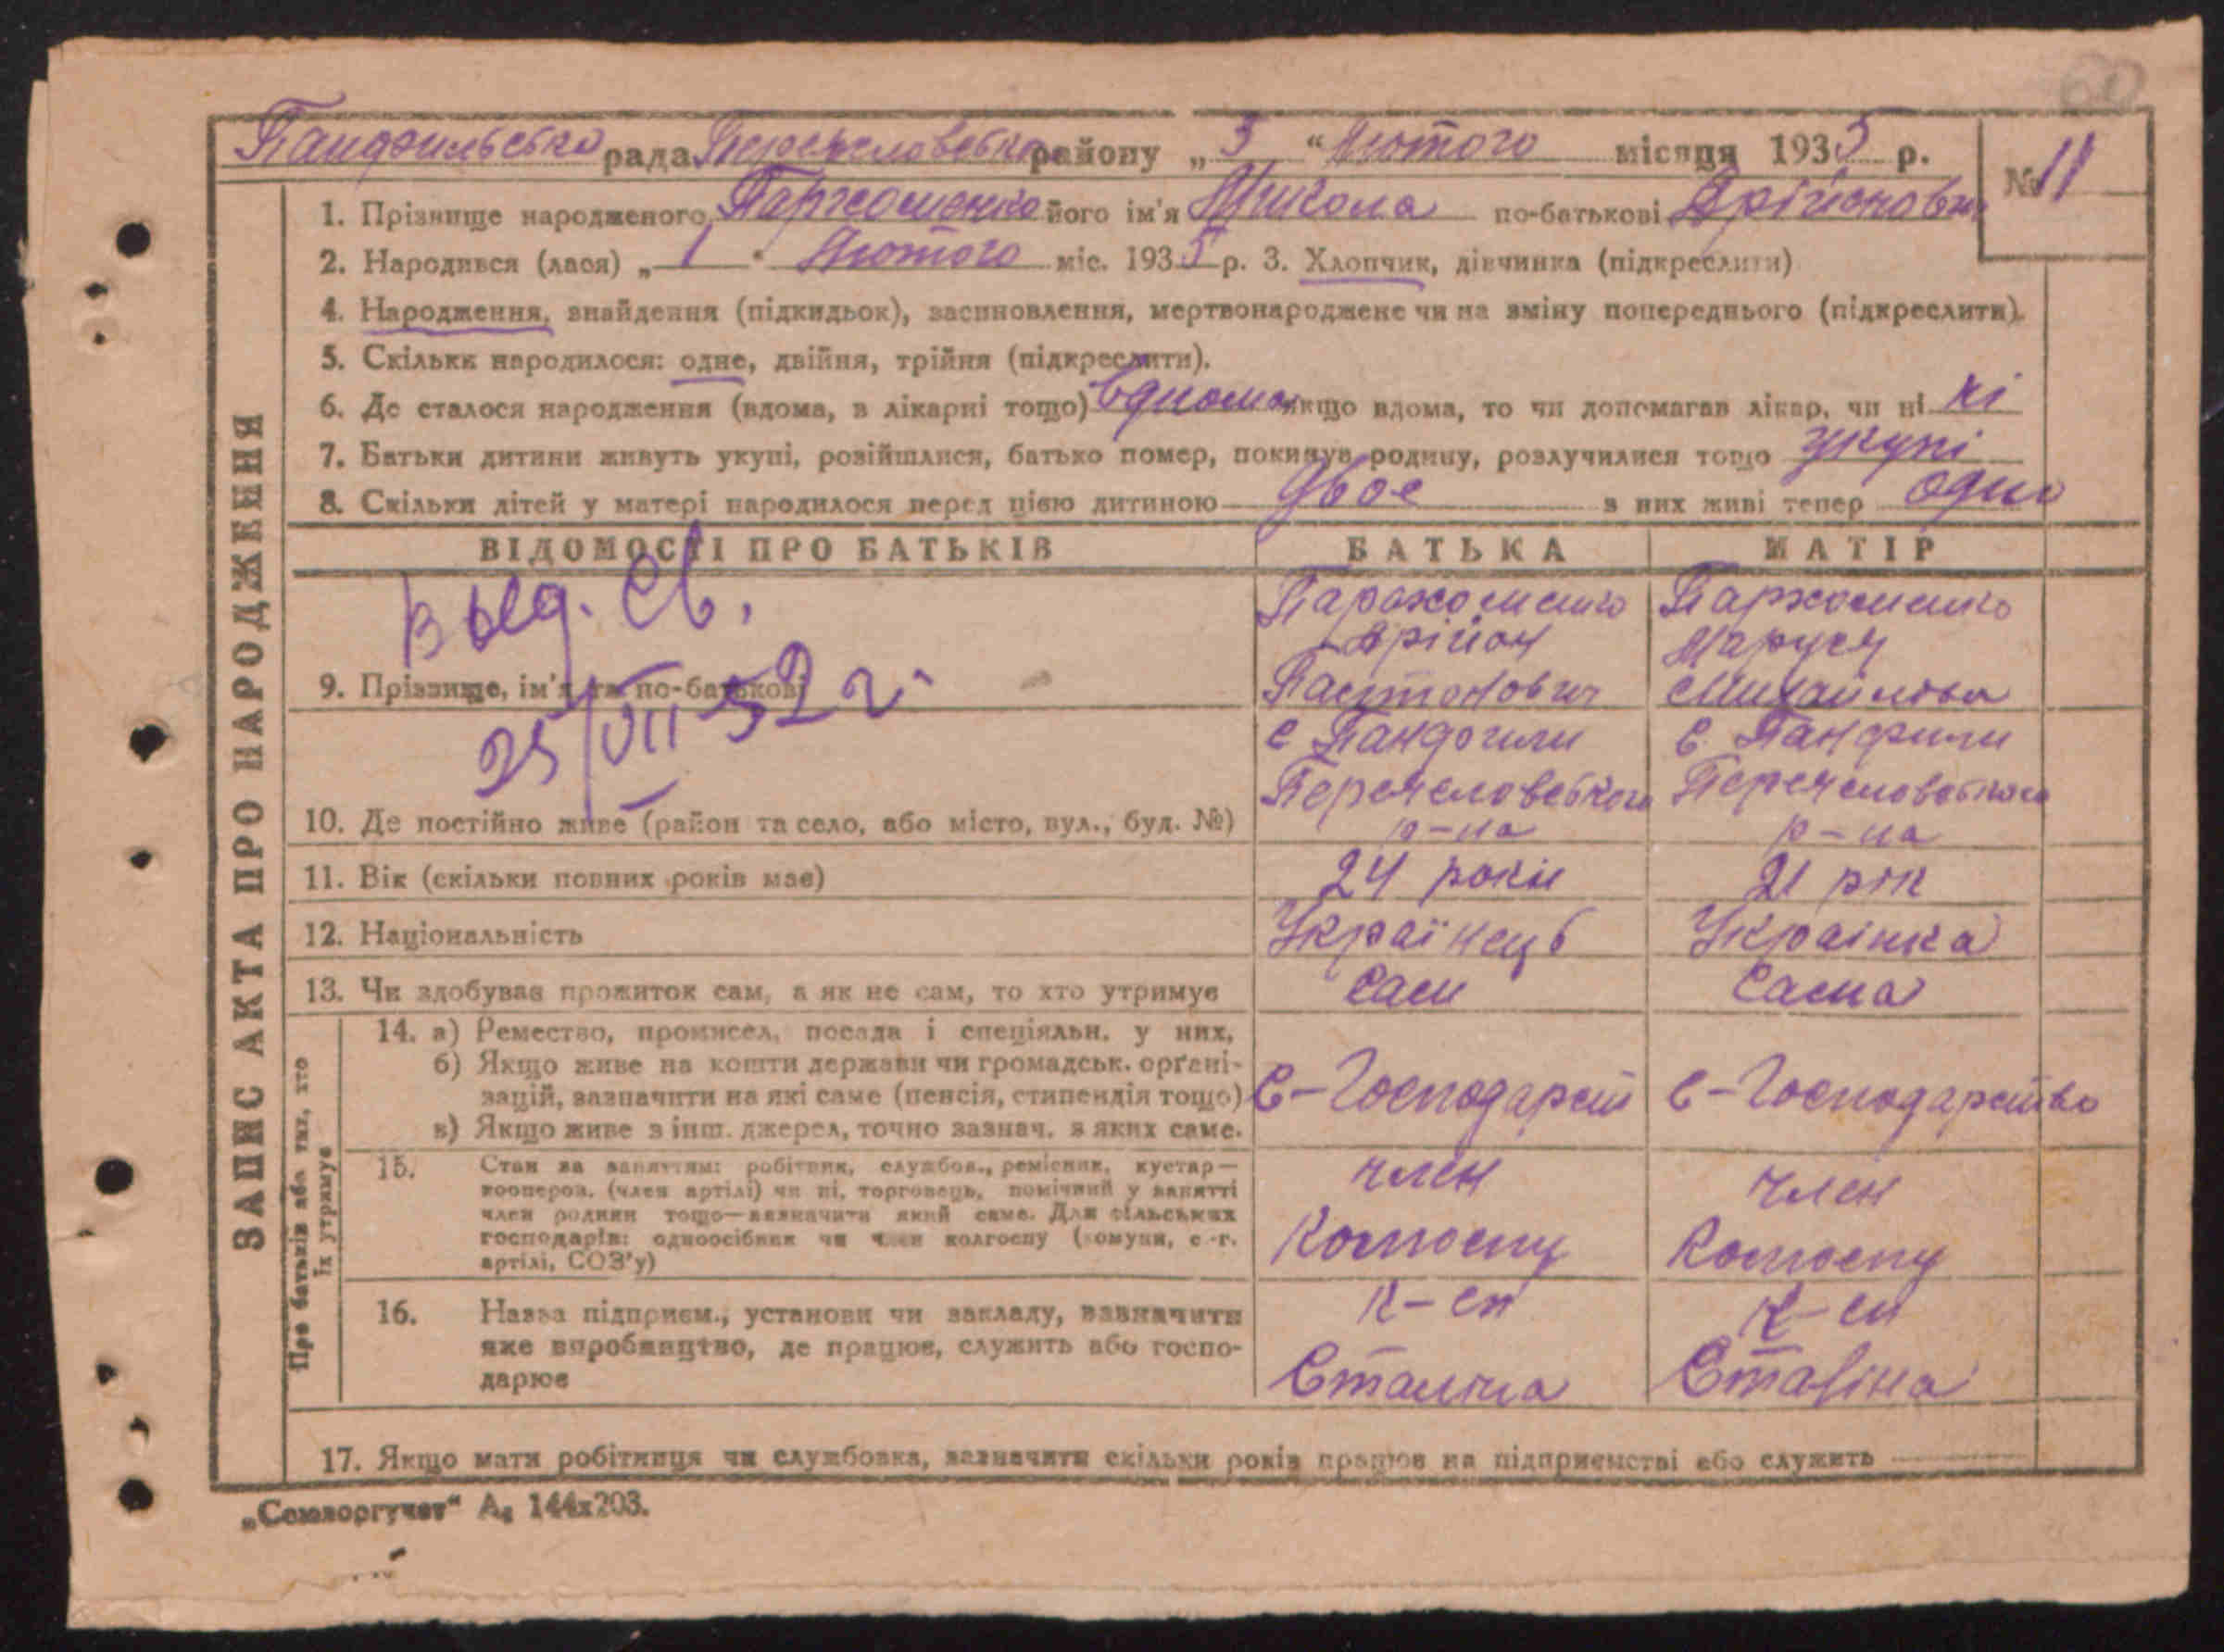 60
Панфильська рада Переяславського району „ 3 “ Лютого місяця 1935 р.
№ 11
1. Прізвище народженого Пархоменко його ім'я Микола по-батькові Арійонович
2. Народився (лася) „ 1 “ Лютого міс. 1935 р. 3. Хлопчик, дівчинка (підкреслити)
4. Народження, знайдення (підкидьок), засиновлення, мертвонароджене чи на зміну попереднього (підкреслити).
5. Скільки народилося: одне, двійня, трійня (підкреслити).
6. Де сталося народження (вдома, в лікарні тощо) вдома якщо вдома, то чи допомагав лікар, чи ні ні
7. Батьки дитини живуть укупі, розійшлися, батько помер, покинув родину, розлучилися тощо укупі
8. Скільки дітей у матері народилося перед цією дитиною двое з них живі тепер одно
ЗАПИС АКТА ПРО НАРОДЖЕННЯ
ВІДОМОСТІ ПРО БАТЬКІВ БАТЬКА МАТІР
Выд. св.
25/VII-52 г.
9. Прізвище, ім'я та по-батькові
Пархоменко
Арійон
Пархоменко
Маруся
Михайлова
10. Де постійно живе (район та село, або місто, вул., буд. №)
с Панфили
Переяславського
р-на
с. Панфили
Переяславського
р-на
11. Вік (скільки повних років має) 24 роки 21 рік
12. Національність Українець Українка
13. Чи здобуває прожиток сам, а як не сам, то хто утримує Сам Сама
Про батьків або тих, хто
їх утримує
14. а) Ремество, промисел, посада і спеціяльн. у них,
б) Якщо живе на кошти держави чи громадськ. орґані-
зацій, зазначити на які саме (пенсія, стипендія тощо)
в) Якщо живе з інш. джерел, точно зазнач. з яких саме.
С-Господарст С-Господарство
15. Стан за заняттям: робітник, службов., ремісник, кустар—
кооперов. (член артілі) чи ні, торговець, помічний у занятті
член родини тощо—зазначити який саме. Для сільських
господарів: одноосібник чи член колгоспу (комуни, с.-г.
артілі, СОЗ'у)
член
Колгоспу
член
Колгоспу
16. Назва підприєм., установи чи закладу, зазначити
яке виробництво, де працює, служить або госпо-
дарює
к-сп
Сталіна
к-сп
Сталіна
17. Якщо мати робітниця чи службовка, зазначити скільки років працює на підприємстві або служить
„Союзоргучет“ А₆ 144х203.